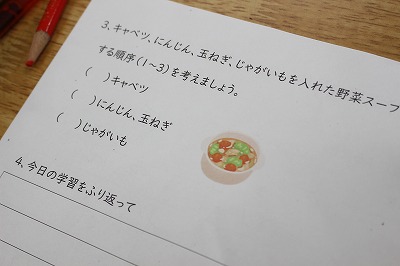 3、キャベツ、にんじん、玉ねぎ、じゃがいもを入れた野菜スープ
する順序(1~3)を考えましょう。
(　)キャベツ
(　)にんじん、玉ねぎ
(　)じゃがいも
4、今日の学習をふり返って